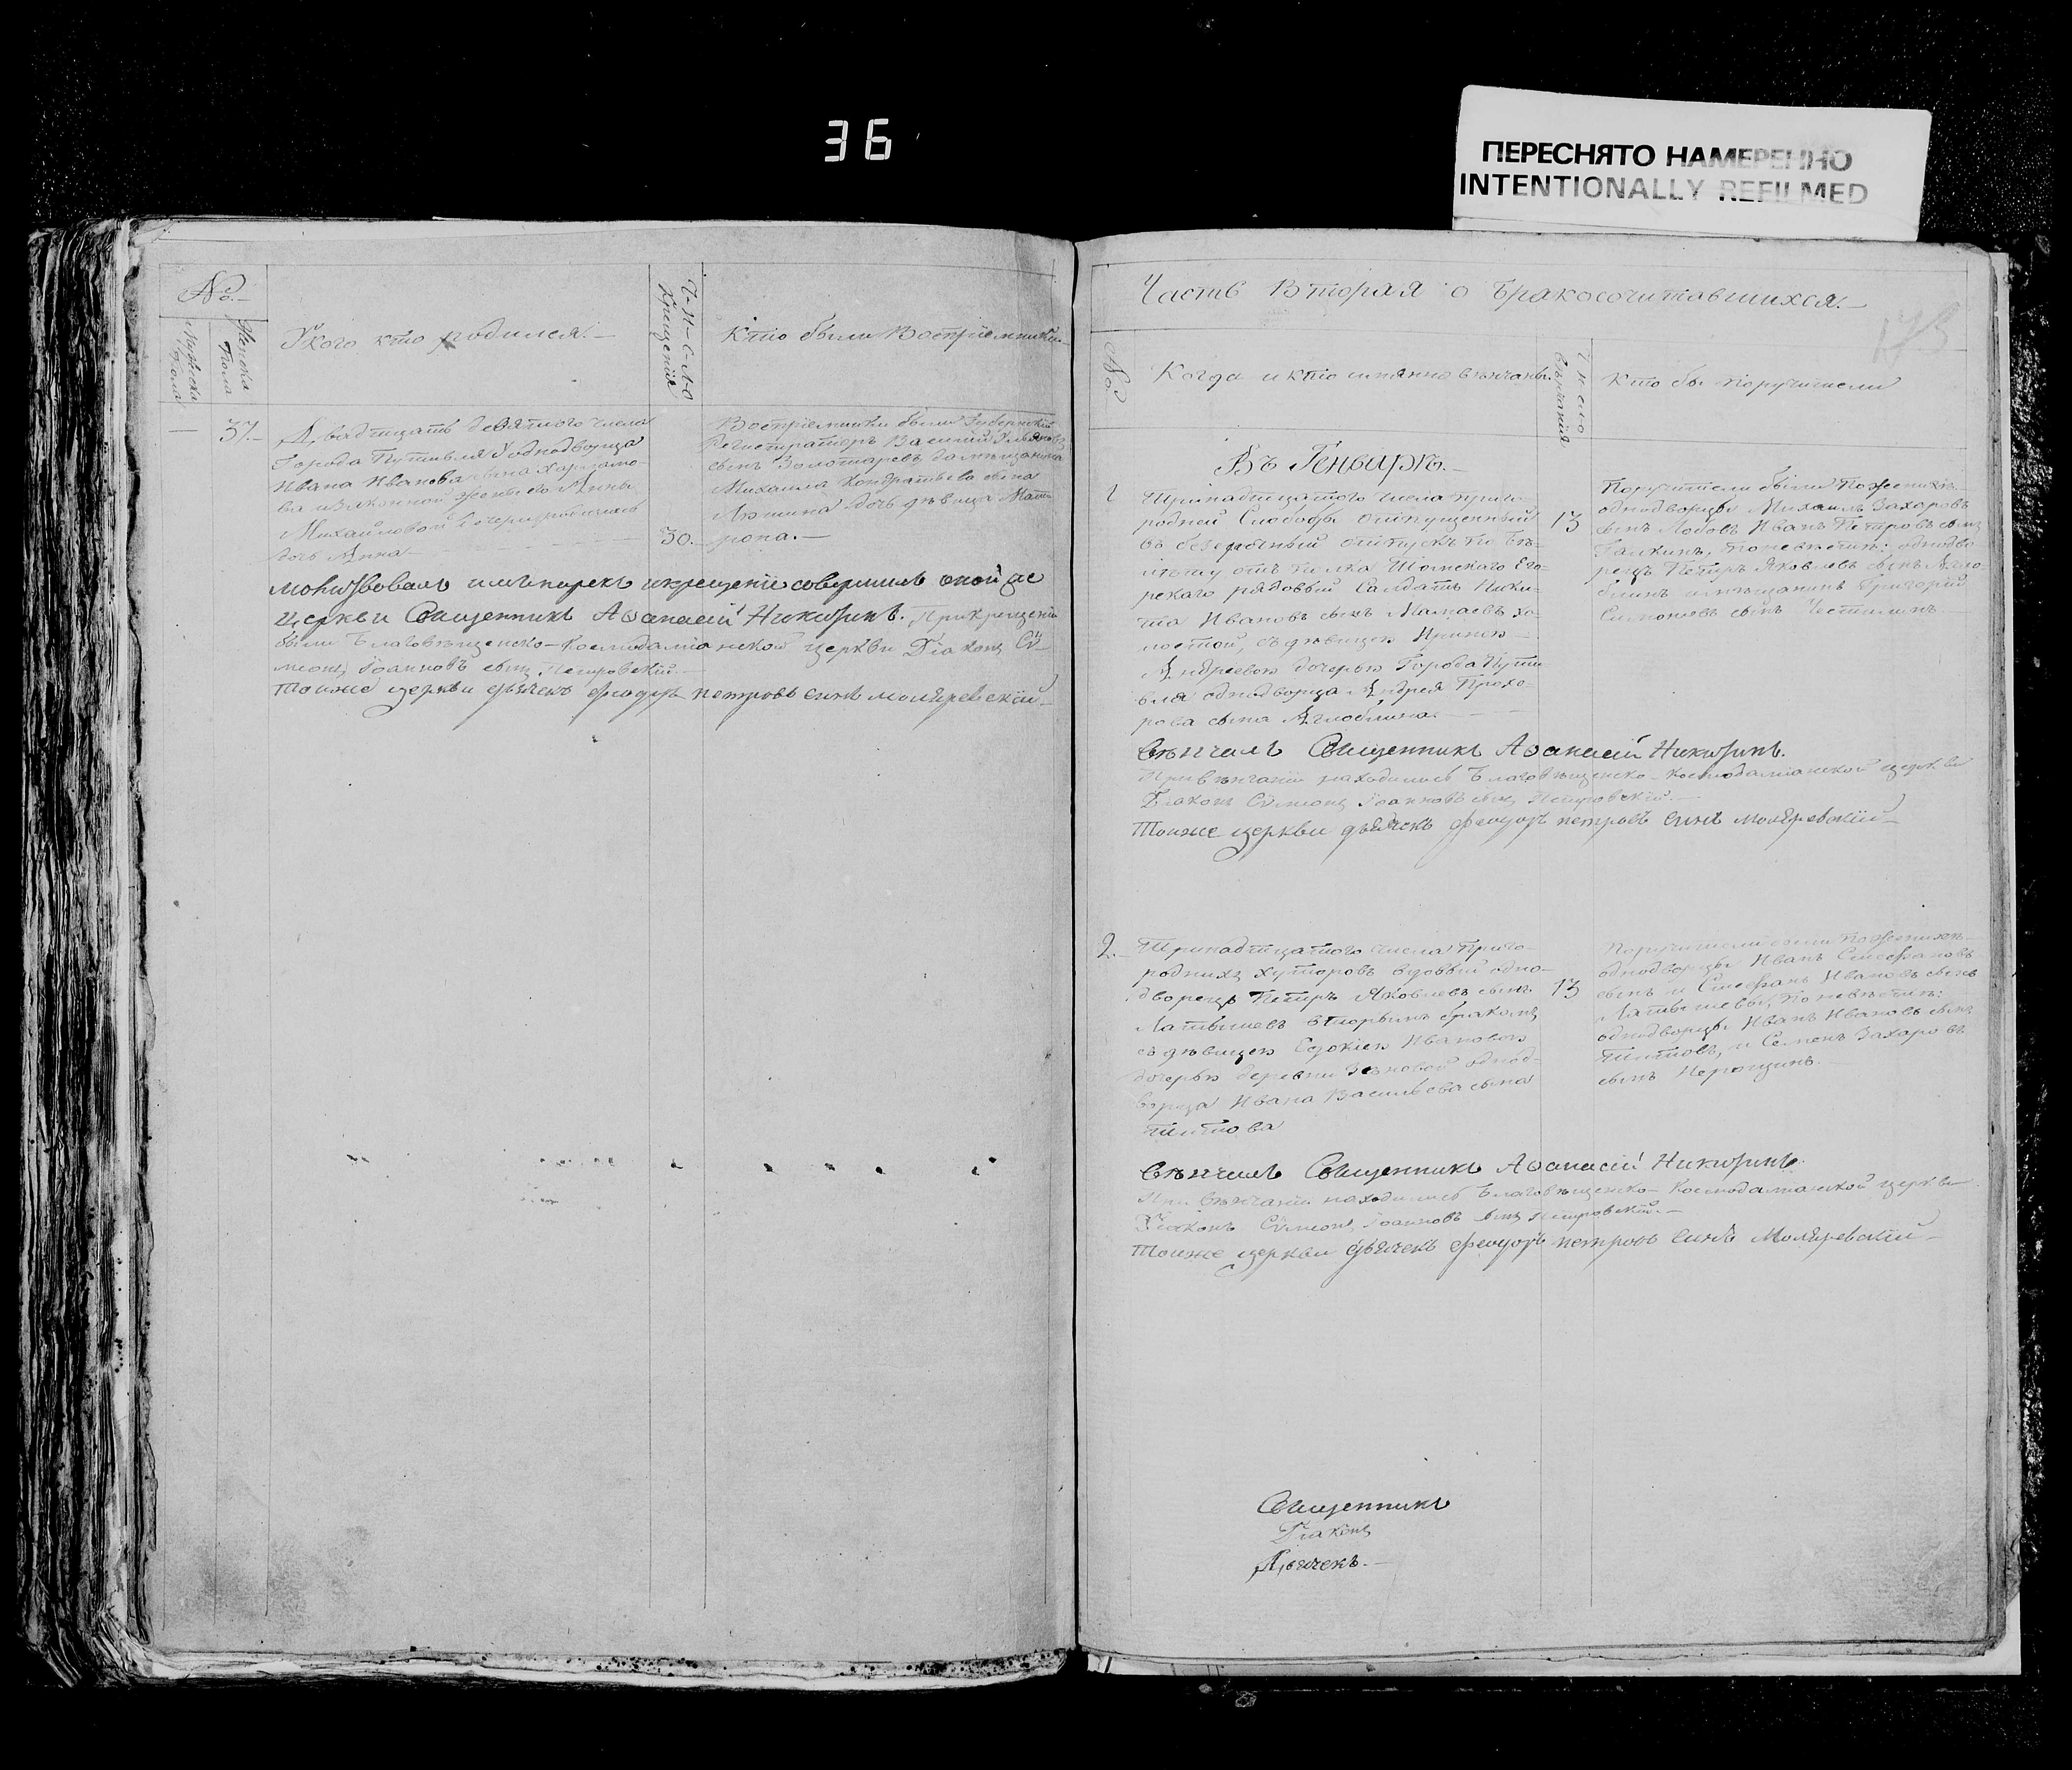 36
ПЕРЕСНЯТО НАМЕРЕННО
INTENTIONALLY REFILMED
№
Мужеска пола
Женска пола
У кого кто родился.
Ч-И-С-Л-О Крещенія
Кто были Воспріемники
—
37.
Двадцать девятого числа
Города Путивля У однодворца
Ивана Иванова сына
ва и законной жены его Анны
Михайловой дочери родилась
дочь Анна
30.
Воспріемники были Губернскій
Регистраторъ Василій
сынъ Золотаревъ, да мещанина
Михаила Кондратьева сына
дочь девица Мат-
рона.
молитвовалъ имя нарекъ и крещеніе совершилъ оной же
церкви Священникъ Аѳанасій Никитинъ. При крещеніи
были Благовещенско-Космодаміанской церкви Діаконъ Сѵ-
меонъ Іоанновъ сынъ Петровскій.
Тоиже церкви дьячекъ феодоръ петровъ синъ моляревскій
Часть Вторая о бракосочитавшихся.
175
№
Когда и кто имянно венчаны.
Число венчанія
Кто бы поручители
Въ Генваре.
1
Тринадцатого числа приго-
родней Слободы отпущенный
въ безсрочный отпускъ по би-
лету отъ полка Томского Еге-
рского рядовый Салдатъ Ники-
та Ивановъ сынъ Мамаевъ хо-
лостой, съ девицею Ириною
Андреевою дочерью Города Пути
вля однодворца Андрея Прохо-
рова сына Аглоблина.
13
Поручители были По женихе
однодворцы Михаилъ Захаровъ
сынъ Лобовъ Иванъ Петровъ сынъ
Галкинъ, по невесте: однодво
рецъ Петръ Яковлевъ сынъ Агло-
блинъ и мещанинъ Григорій
Симоновъ сынъ
Венчалъ Священникъ Аѳанасій Никитинъ.
При венчаніи находились Благовещенско-Космодаміанской церкви
Діаконъ Сѵмеонъ Іоанновъ сынъ Петровскій.
Тоиже церкви дьячекъ феодоръ петровъ синъ моляревскій
2.
Тринадцатого числа Приго-
роднихъ хуторовъ вдовый одно-
дворецъ Петръ Яковлевъ сынъ
Латышевъ вторымъ бракомъ
съ девицею Евдокіею Ивановою
дочерью деревни однод-
ворца Ивана Васильева сына
Титова
13
Поручители были По женихе
однодворцы Иванъ Стефановъ
сынъ и Стефанъ Ивановъ сынъ
Латышевы, по невесте:
однодворцы Иванъ Ивановъ сынъ
Титовъ, и Семенъ Захаровъ
сынъ
Венчалъ Священникъ Аѳанасій Никитинъ.
При венчаніи находились Благовещенско-Космодаміанской церкви
Діаконъ Сѵмеонъ Іоанновъ сынъ Петровскій.
Тоиже церкви дьячекъ феодоръ петровъ синъ Моляревскій
Священникъ
Діаконъ
Дьячекъ.